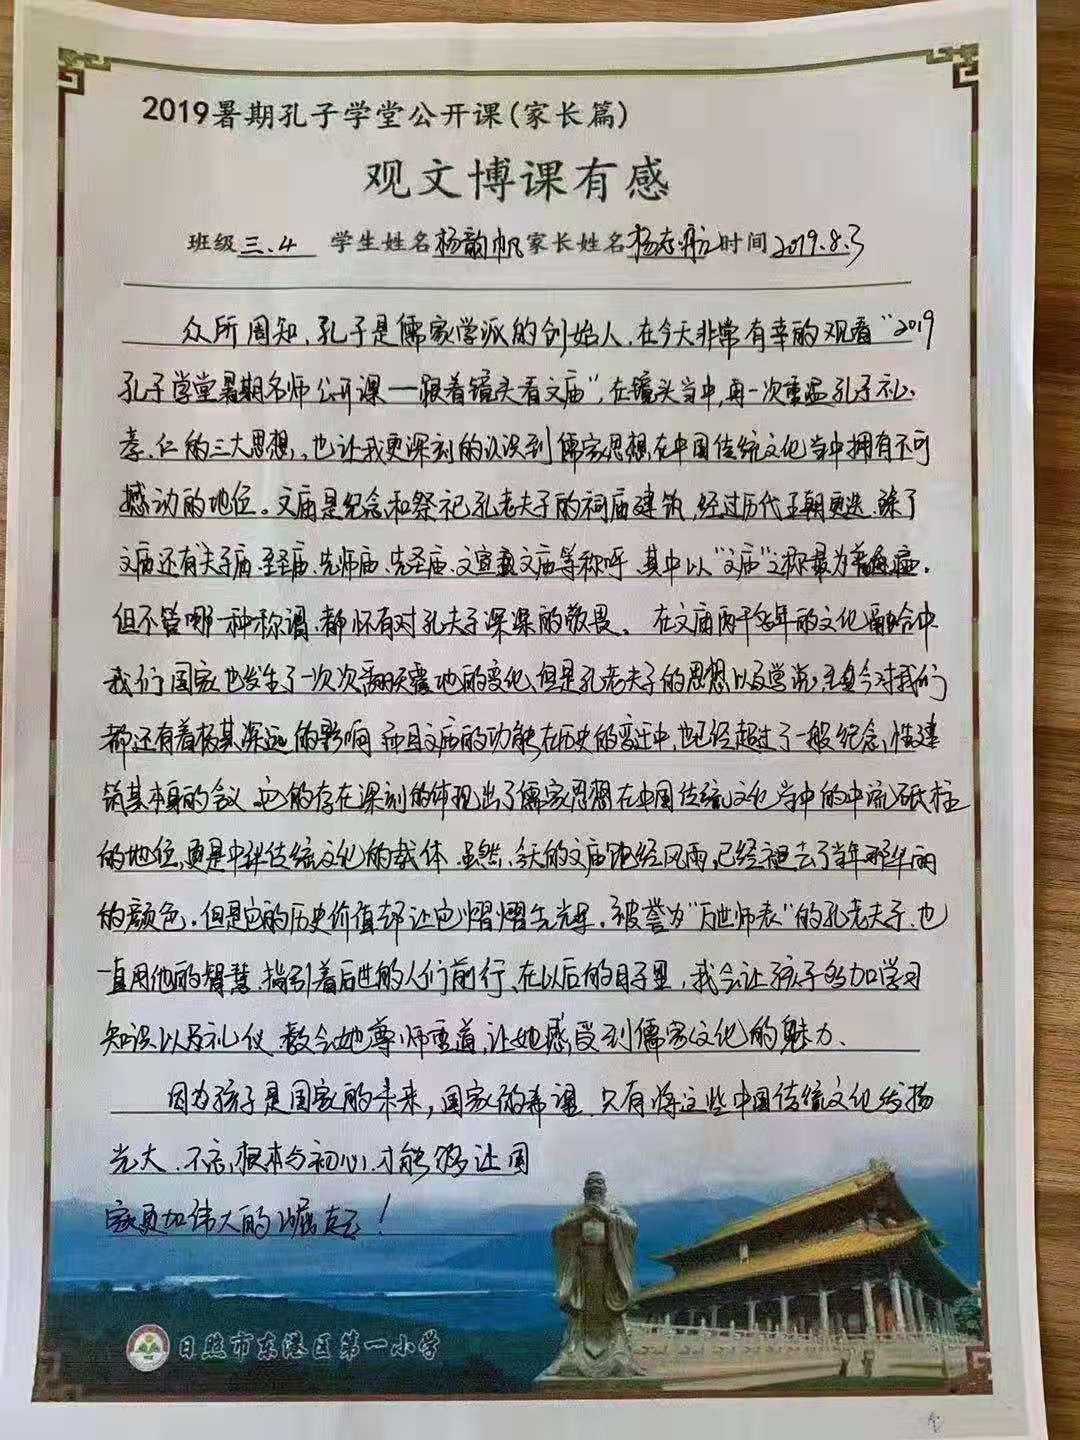 2019暑期孔子学堂公开课(家长篇)
观文博课有感
班级三.4 学生姓名杨韵帆家长姓名杨志刚时间2019.8.3
众所周知,孔子是儒家学派的创始人,在今天非常有幸的观看“2019
孔子学堂暑期名师公开课——跟着镜头看文庙”,在镜头当中,再一次重温孔子礼、
孝、仁的三大思想,也让我更深刻的认识到儒家思想在中国传统文化当中拥有不可
撼动的地位。文庙是纪念和祭祀孔老夫子的祠庙建筑,经过历代王朝更迭,除了
文庙还有夫子庙、至圣庙、先师庙、先圣庙、文宣文庙等称呼,其中以“文庙”之称最为普遍.
但不管哪一种称谓,都怀有对孔夫子深深的敬畏、在文庙两千多年的文化融合中
我们国家也发生了一次次翻天震地的变化,但是孔老夫子的思想以及学说,至今对我们
都还有着极其深远的影响,而且文庙的功能在历史的变迁中,也已经超过了一般纪念性建
筑其本身的含义,它的存在深刻的体现出了儒家思想在中国传统文化当中的中流砥柱
的地位,更是中华传统文化的载体.虽然,今天的文庙饱经风雨,已经褪去了当年那华丽
的颜色,但是它的历史价值却让它熠熠生光辉.被誉为“万世师表”的孔老夫子,也
一直用他的智慧,指引着后世的人们前行、在以后的日子里,我会让孩子多加学习
知识以及礼仪,教会她尊师重道,让她感受到儒家文化的魅力、
因为孩子是国家的未来,国家的希望、只有将这些中国传统文化发扬
光大、不忘根本与初心,才能够让国
家更加伟大的崛起!
日照市东港区第一小学